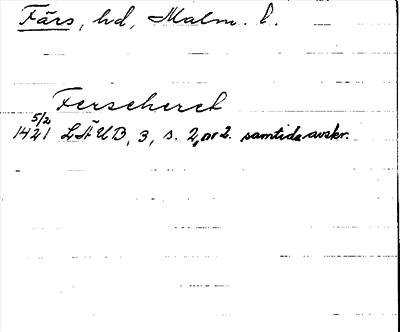 Färs, hd, Malm. l.
Ferscheret
5/2
1421 LÄUB, 3, s. 2, nr 2. samtida avskr.